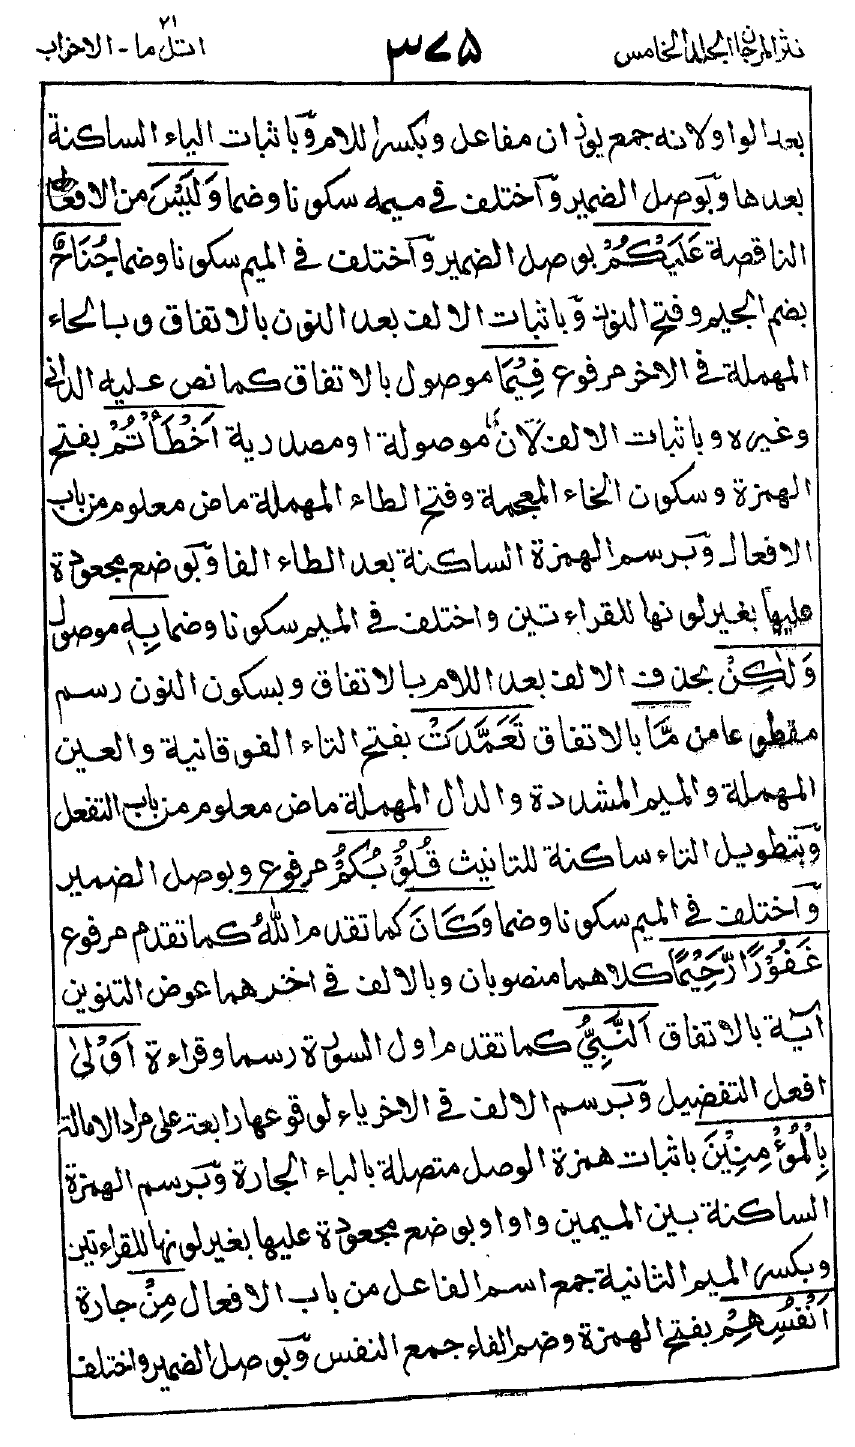 نثر المرجان الجلد الخامس ٣٧٥ اتل ما - الاحزاب ٢١
بعد الواو لانه جمع يوزان مفاعل وبكسر اللام وباثبات الياء الساكنة
بعدها وبوصل الضمير واختلف في ميمه سكونا وضما وَلَيْسَ من الافعال
الناقصة عَلَيْكُمْ بوصل الضمير واختلف في الميم سكونا وضما جُنَاحٌ
بضم الجيم وفتح النون وباثبات الالف بعد النون بالاتفاق وبالحاء
المهملة في الاخر مرفوع فِيْمَا موصول بالاتفاق كما نص عليه الداني
وغيره وباثبات الالف لان ما موصولة او مصدرية اَخْطَأْتُمْ بفتح
الهمزة وسكون الخاء المعجمة وفتح الطاء المهملة ماض معلوم من باب
الافعال وبرسم الهمزة الساكنة بعد الطاء الفا وبوضع مجعودة
عليها بغير لونها للقراءتين واختلف في الميم سكونا وضما بِهٖ موصول
وَلٰكِنْ بحذف الالف بعد اللام بالاتفاق وبسكون النون رسم
مقطوعا من مَّا بالاتفاق تَعَمَّدَتْ بفتح التاء الفوقانية والعين
المهملة والميم المشددة والدال المهملة ماض معلوم من باب التفعل
وبتطويل التاء ساكنة للتانيث قُلُوْبُكُمْ مرفوع وبوصل الضمير
واختلف في الميم سكونا وضما وَكَانَ كما تقدم اللهُ كما تقدم مرفوع
غَفُوْرًا رَّحِيْمًا كلاهما منصوبان وبالالف في اخرهما عوض التنوين
آية بالاتفاق اَلنَّبِيُّ كما تقدم اول السورة رسما وقراءة اَوْلٰى
افعل التفضيل وبرسم الالف في الاخر ياء لوقوعها رابعة على مراد الامالة
بِالْمُؤْمِنِيْنَ باثبات همزة الوصل متصلة بالباء الجارة وبرسم الهمزة
الساكنة بين الميمين واوا وبوضع مجعودة عليها بغير لونها للقراءتين
وبكسر الميم الثانية جمع اسم الفاعل من باب الافعال مِنْ جارة
اَنْفُسِهِمْ بفتح الهمزة وضم الفاء جمع النفس وبوصل الضمير واختلف